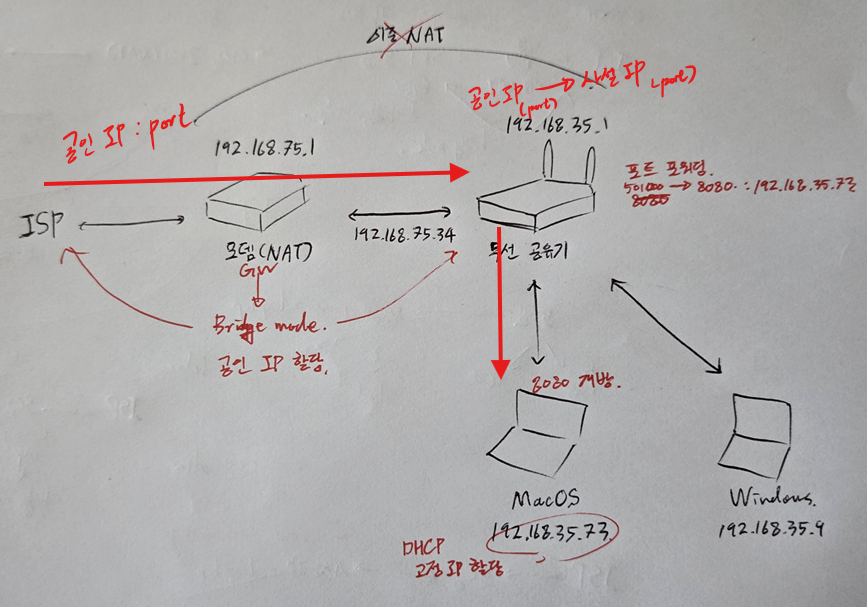 이중 NAT
공인 IP → 사설 IP
(port) (port)
공인 IP : port
192.168.75.1
192.168.35.1
포트 포워딩.
50,000 → 8080. : 192.168.35.73
8080
ISP
192.168.75.34
모뎀(NAT)
GW
무선 공유기
Bridge mode.
공인 IP 할당.
8080 개방.
MacOS
Windows.
192.168.35.73
192.168.35.9
DHCP
고정 IP 할당